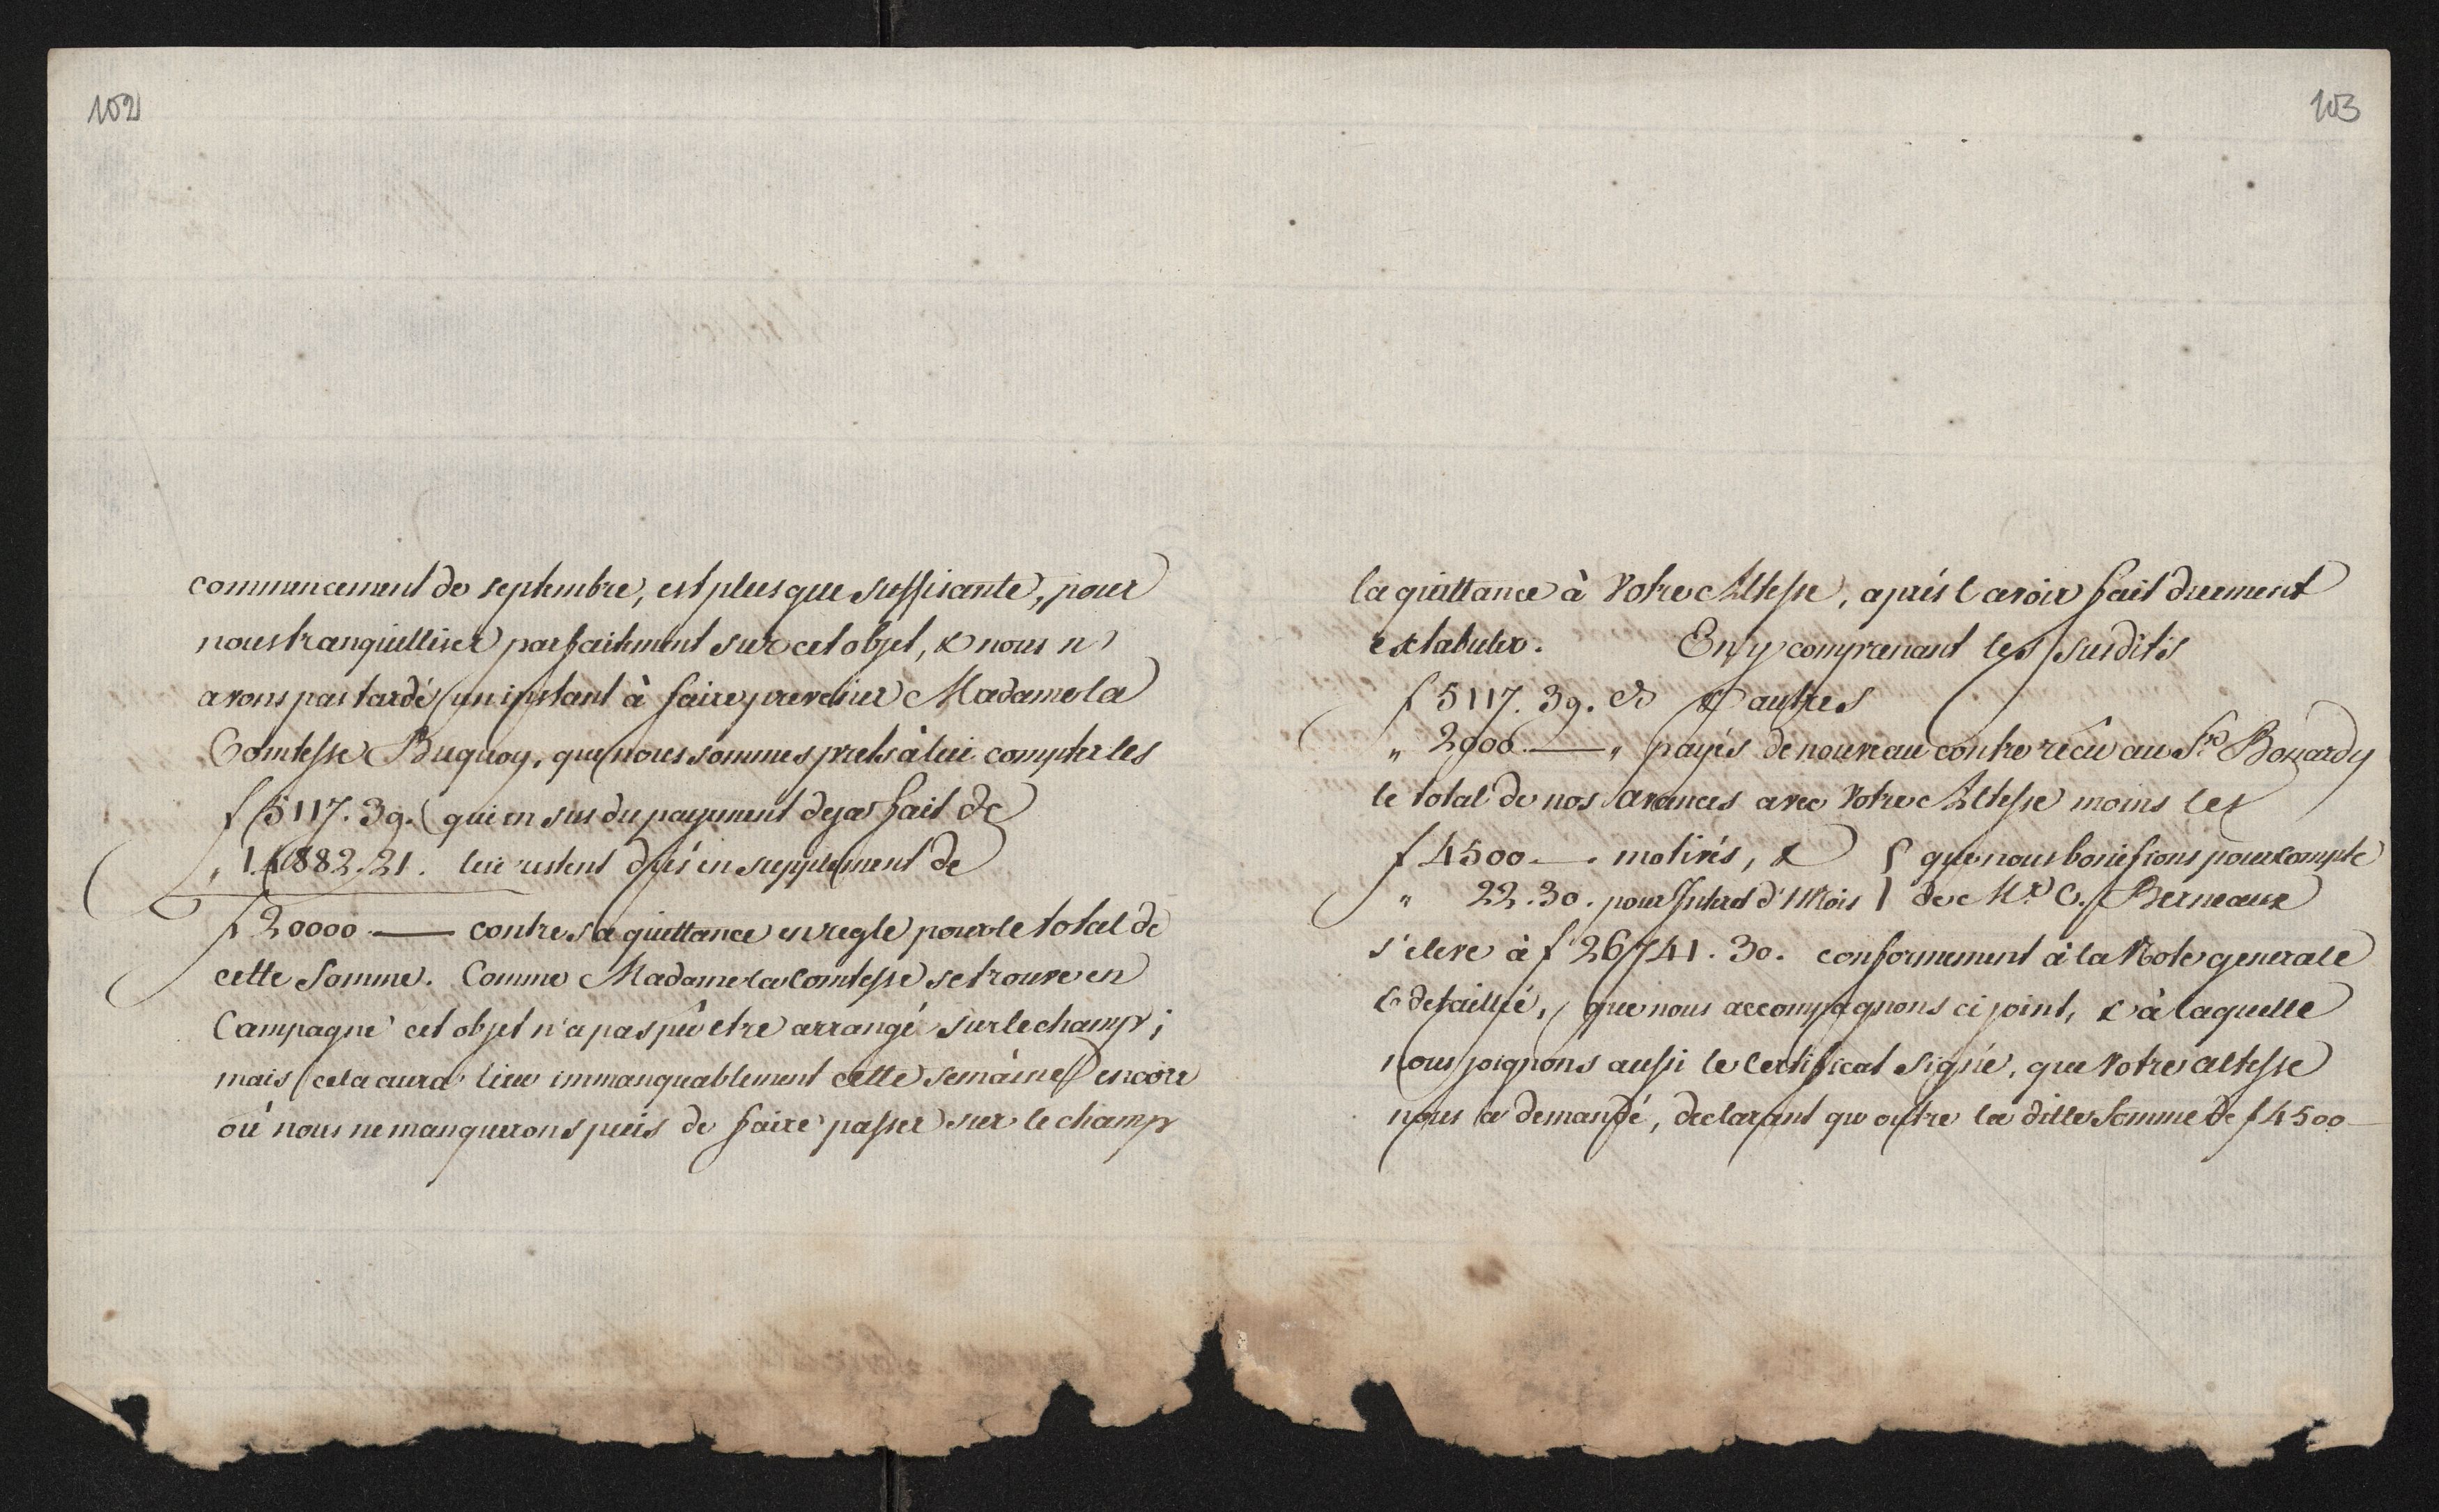 102
commencement de septembre, est plus que suffisante, pour
nous tranquilliser parfaitement sur cet objet, & nous n'
avons pas tardés un instant à faire prevenir Madame la
Comtesse Buquoy, que nous sommes prets à lui compter les
f 5117. 39. qui en sus du payement deja fait de
" 14882. 21. lui restent dûs en supplement de
f 20000 — contre sa quittance en regle pour le total de
cette Somme. Comme Madame la Comtesse se trouve en
Campagne cet objet n'a pas pû etre arrangé sur le champ;
mais cela aura lieu immanquablement cette semaine encore
où nous ne manquerons puis de faire passer sur le champ
103
la quittance à Votre Altesse, aprés l'avoir fait duement
extabuler. En y comprenant les susdits
f 5117. 39. & autres
" 2000 — " payés de nouveau contre récu au Sr. Bozzardy
le total de nos avances avec Votre Altesse moins les
f 4500 — . motivés, & que nous bonifions pour compte
" 22. 30. pour Interet d'1 Mois de Mr. C. Berneaux
s'eleve à f 26741. 30. conformement à la Note generale
& detaillée, que nous accompagnons ci joint, & à laquelle
nous joignons aussi le Certificat signé, que Votre Altesse
nous a demandé, declarant qu'outre la ditte Somme de f 4500 —